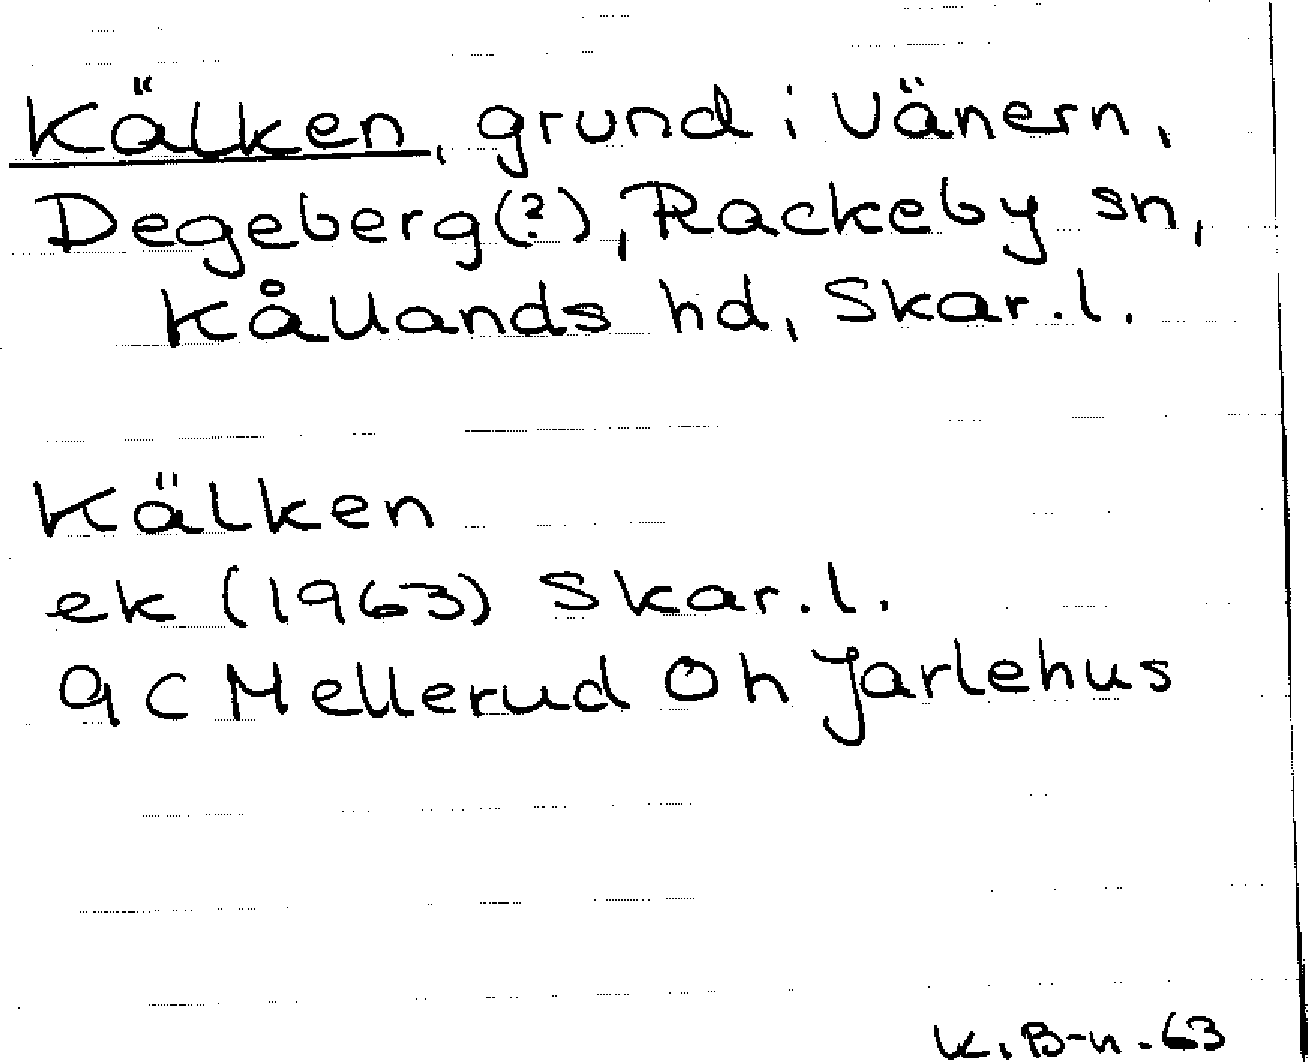 Kälken, grund i Vänern,
Degeberg(?), Rackeby sn,
Kållands hd, Skar.l.
Kälken
ek (1963) Skar.l.
9C Mellerud Oh Jarlehus
K.B-n.-63